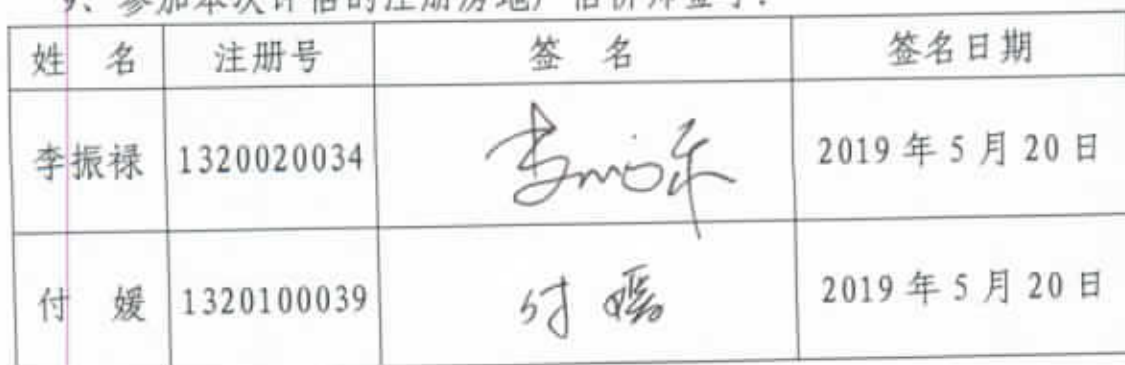 9、参加本次评估的注册房地产估价师签字:
姓 名 注册号 签 名 签名日期
李振禄 1320020034 2019年5月20日
付 媛 1320100039 付媛 2019年5月20日